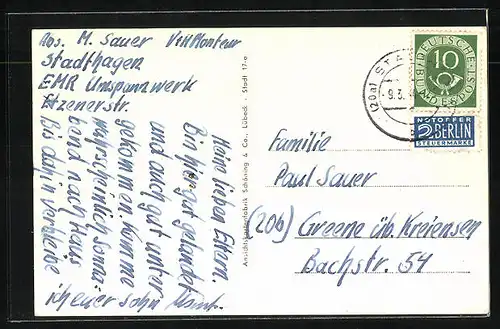 Abs. M. Sauer
Stadthagen
EMR Umspannwerk
Etzenerstr.
Meine lieben Eltern.
Bin hier gut gelandet
und auch gut unter
gekommen. Komme
wahrscheinlich Sonna-
bend nach Haus
Bis dahin verbleibe
ich euer Sohn
Ansichtskartenfabrik Schöning & Co., Lübeck · Stadt
DEUTSCHE BUNDESPOST
10
(20a) STA
-9.3.
NOTOPFER
2 BERLIN
STEUERMARKE
Familie
Paul Sauer
(20b) Greene üb. Kreiensen
Bachstr. 54